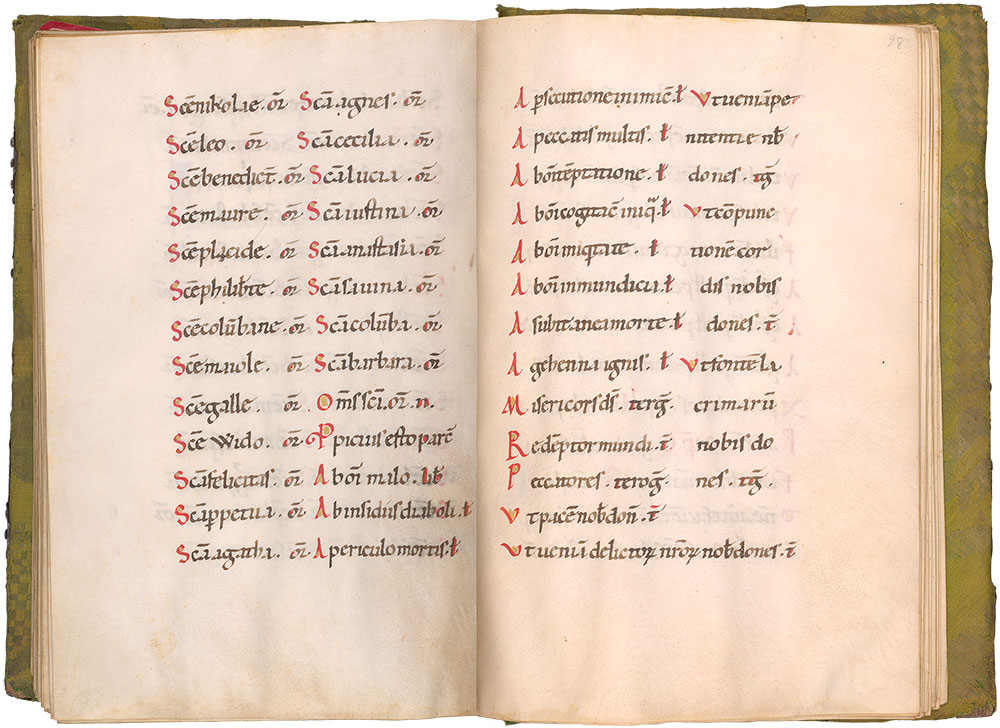 Scēnikolae. or̄ Scā agnes. or̄
Scēleo. or̄ Scācecilia. or̄
Scēbenedict̄. or̄ Scālucia. or̄
Scēmaure. or̄ Scāiustina. or̄
Scēplacide. or̄ Scāanastasia. or̄
Scēphilib̄te. or̄ Scāsauina. or̄
Scēcolūbane. or̄ Scācolūba. or̄
Scēmaiole. or̄ Scābarbara. or̄
Scēgalle. or̄ Om̄s sc̄i. or̄. n.
Scē Wido. or̄ Ppicius esto parc̄
Scāfelicitas. or̄ A bon̄i malo. lib̄
Scāppetua. or̄ A binsidiis diaboli. ł
Scāagatha. or̄ A periculo mortis. ł
98
A psecutione inimic̄. ł Vt ueniā pe
A peccatis multis. ł nitentiae nb̄
A bōītēptatione. ł dones. tḡ
A bōīcogitac̄ iniq̄. ł Vt cōpunc
A bōīiniquitate. ł tionē cor
A bōīinmundicia. ł dis nobis
A subitanea morte. ł dones. t̄
A gehenna ignis. ł Vt fontē la
Misericors ds̄. terḡ. crimarū
Redēptor mundi. t̄ nobis do
Peccatores. terogḡ nes. tḡ.
Vt pacē nob̄ don̄. t̄
Vt ueniā delictoꝝ nr̄oꝝ nob̄ dones. t̄